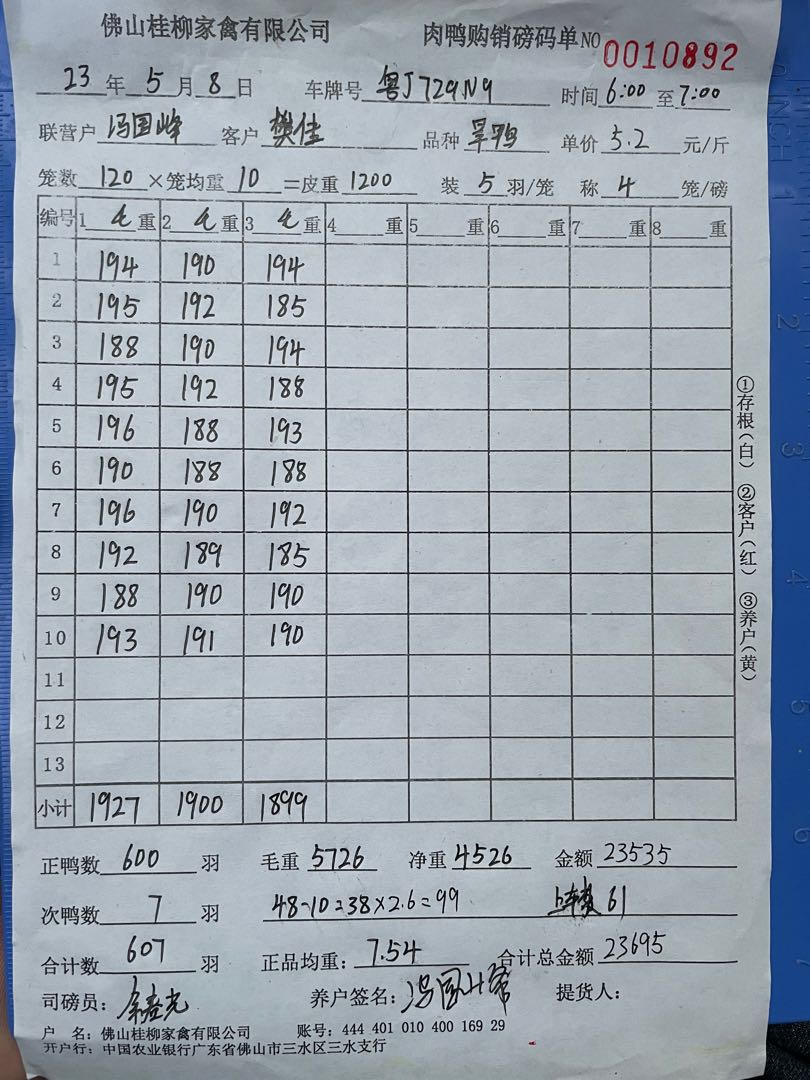 佛山桂柳家禽有限公司 肉鸭购销磅码单NO 0010892
23年5月8日 车牌号 粤J729N9 时间6:00至7:00
联营户 冯国峰 客户 樊佳 品种 旱鸭 单价 5.2 元/斤
笼数 120 ×笼均重 10 =皮重 1200 装 5 羽/笼 称 4 笼/磅
编号 1 毛 重 2 毛 重 3 毛 重 4 重 5 重 6 重 7 重 8 重
1 194 190 194
2 195 192 185
3 188 190 194
4 195 192 188
5 196 188 193
6 190 188 188
7 196 190 192
8 192 189 185
9 188 190 190
10 193 191 190
11
12
13
小计 1927 1900 1899
①存根(白) ②客户(红) ③养户(黄)
正鸭数 600 羽 毛重 5726 净重 4526 金额 23535
次鸭数 7 羽 48-10=38×2.6=99 上车费 61
合计数 607 羽 正品均重: 7.54 合计总金额 23695
司磅员: 养户签名: 冯国峰 提货人:
户 名: 佛山桂柳家禽有限公司 账号: 444 401 010 400 169 29
开户行: 中国农业银行广东省佛山市三水区三水支行